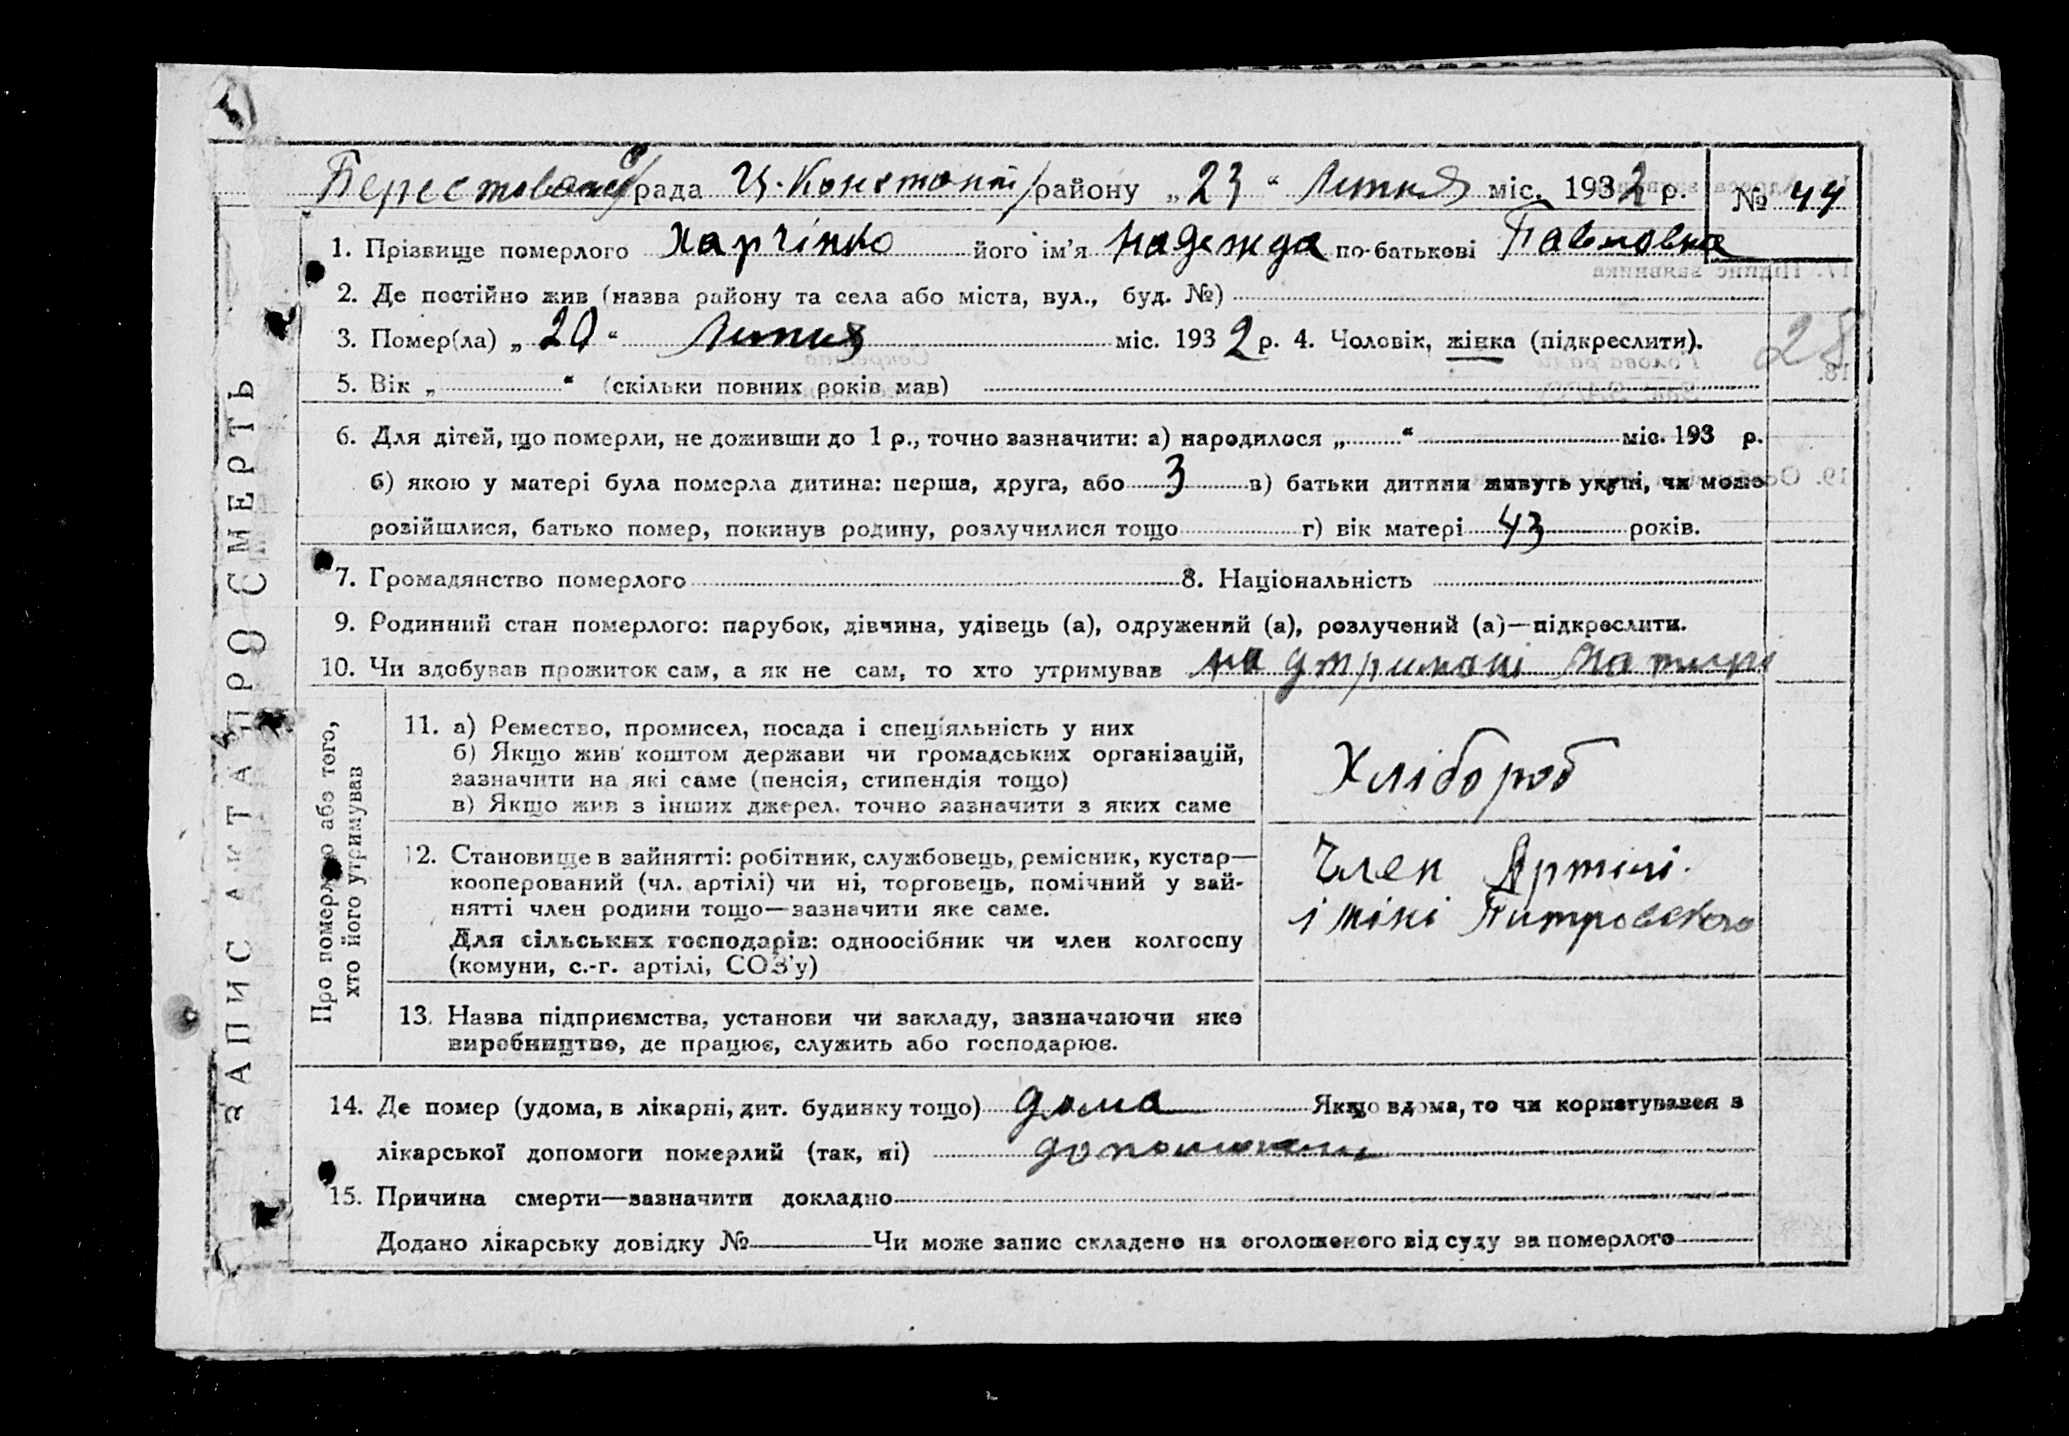 Берестовеньк с/рада Ч.-Констант /району „23“ Липня міс. 1932 р. № 44
1. Прізвище померлого Харчінко його ім’я Надежда по-батькові Павловна
2. Де постійно жив (назва району та села або міста, вул., буд. №)
3. Помер(ла) „20“ Липня міс. 1932 р. 4. Чоловік, жінка (підкреслити).
28
5. Вік „ “ (скільки повних років мав)
6. Для дітей, що померли, не доживши до 1 р., точно зазначити: а) народилося „ “ міс. 193 р.
б) якою у матері була померла дитина: перша, друга, або 3 в) батьки дитини живуть укупі, чи може
розійшлися, батько помер, покинув родину, розлучилися тощо г) вік матері 43 років.
7. Громадянство померлого 8. Національність
9. Родинний стан померлого: парубок, дівчина, удівець (а), одружений (а), розлучений (а)—підкреслити.
10. Чи здобував прожиток сам, а як не сам, то хто утримував на утримані матири
ЗАПИС АКТА ПРО СМЕРТЬ
Про померлого або того,
хто його утримував
11. а) Ремество, промисел, посада і спеціяльність у них
б) Якщо жив коштом держави чи громадських організацій,
зазначити на які саме (пенсія, стипендія тощо)
в) Якщо жив з інших джерел, точно зазначити з яких саме
Хлібороб
12. Становище в зайнятті: робітник, службовець, ремісник, кустар—
кооперований (чл. артілі) чи ні, торговець, помічний у зай-
нятті член родини тощо—зазначити яке саме.
Для сільських господарів: одноосібник чи член колгоспу
(комуни, с.-г. артілі, СОЗ’у)
Член Артілі
імині Питровского
13. Назва підприємства, установи чи закладу, зазначаючи яке
виробництво, де працює, служить або господарює.
14. Де помер (удома, в лікарні, дит. будинку тощо) дома Якщо вдома, то чи користувався з
лікарської допомоги померлий (так, ні)
15. Причина смерти—зазначити докладно
Додано лікарську довідку № Чи може запис складено на оголошеного від суду за померлого